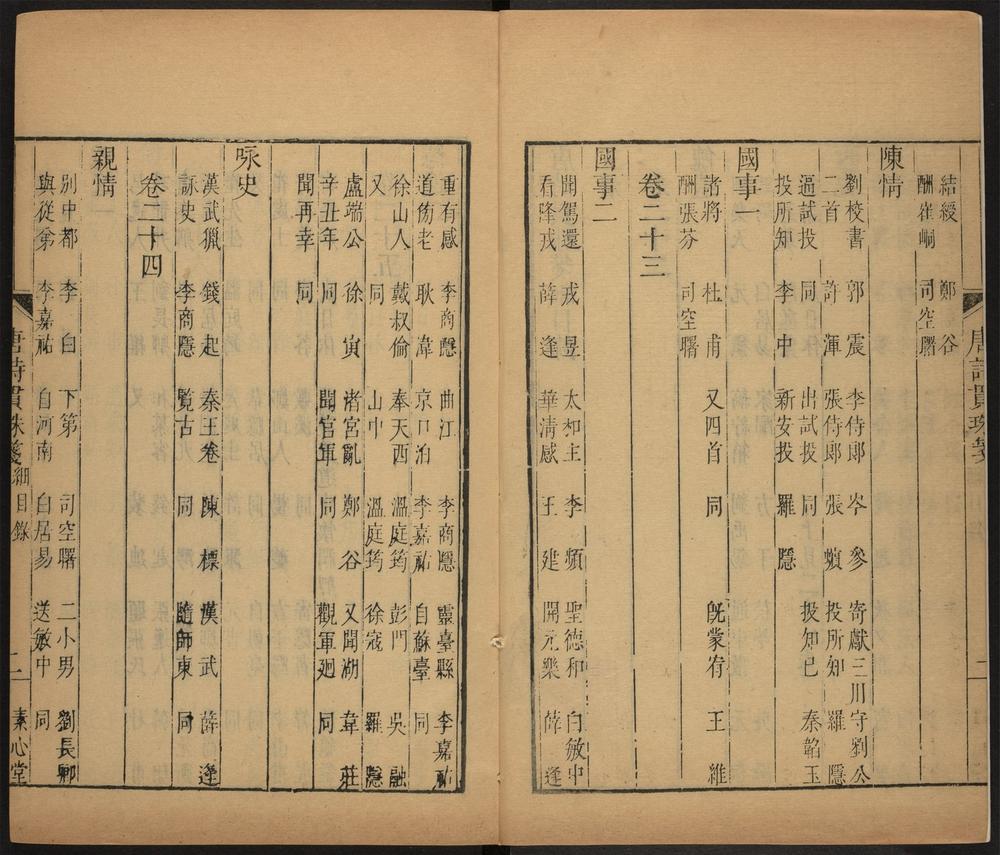 結綬 鄭谷
酬崔峒 司空曙
陳情
劉校書 郭震 李侍郎 岑參 寄獻三川守劉公
二首 許渾 張侍郎 張蠙 投所知 羅隱
逼試投 同 出試投 同 投知己 秦韜玉
投所知 李中 新安投 羅隱
國事一
諸將 杜甫 又四首 同 旣蒙宥 王維
酬張芬 司空曙
卷二十三
國事二
聞駕還 戎昱 太和主 李頻 聖德和 白敏中
看降戎 薛逢 華清感 王建 開元樂 薛逢
重有感 李商隱 曲江 李商隱 靈臺縣 李嘉祐
道傍老 耿湋 京口泊 李嘉祐 自蘇臺 同
徐山人 戴叔倫 奉天西 溫庭筠 彭門 吳融
又 同 山中 溫庭筠 徐寇 羅隱
盧端公 徐寅 渚宮亂 鄭谷 又聞湖 韋莊
辛丑年 同 聞官軍 同 觀軍廻 同
聞再幸 同
咏史
漢武獵 錢起 秦王卷 陳標 漢武 薛逢
詠史 李商隱 覽古 同 隨師東 同
卷二十四
親情
別中都 李白 下第 司空曙 二小男 劉長卿
與從弟 李嘉祐 自河南 白居易 送敏中 同
唐詩貫珠箋 細目錄 二 素心堂